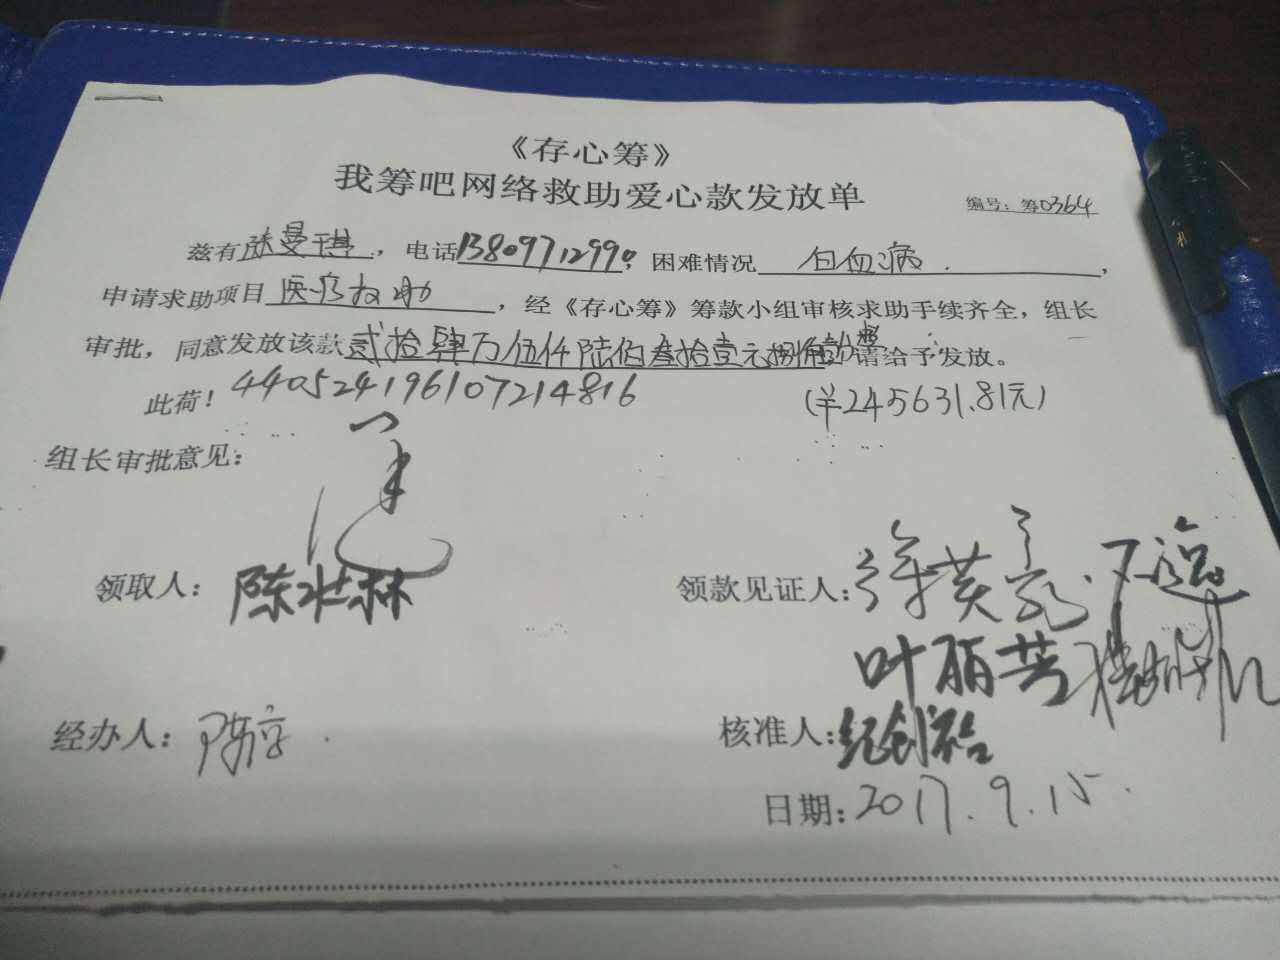 《存心筹》
我筹吧网络救助爱心款发放单
编号：筹0364
兹有 曼琪，电话13809712990，困难情况 白血病.，
申请求助项目 医疗救助，经《存心筹》筹款小组审核求助手续齐全，组长
审批，同意发放该款贰拾肆万伍仟陆佰叁拾壹元捌角壹分整 请给予发放。
此荷！440524196107214816 (￥245631.81元)
组长审批意见：
领取人：陈壮林 领款见证人：
叶丽芳
经办人： 核准人：
日期：2017.9.15.